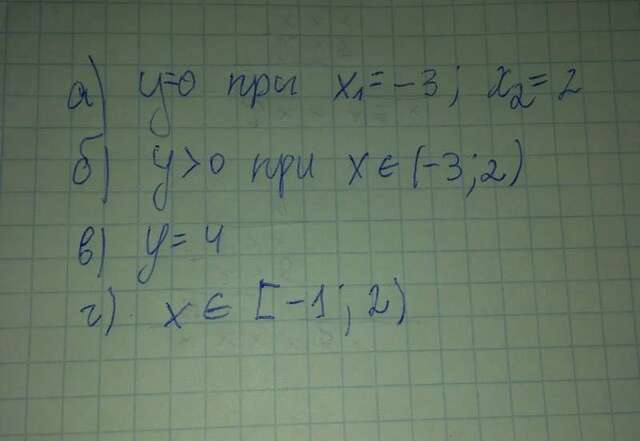 а) y=0 при x₁=-3; x₂=2
б) y>0 при x∈(-3;2)
в) y=4
г) x∈[-1;2)